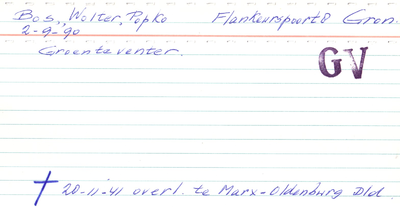 Bos, Wolter, Popko Flankeurspoort 8 Gron.
2-9-90
Groenteventer.
GV
20-11-41 overl. te Marx-Oldenburg Dld.